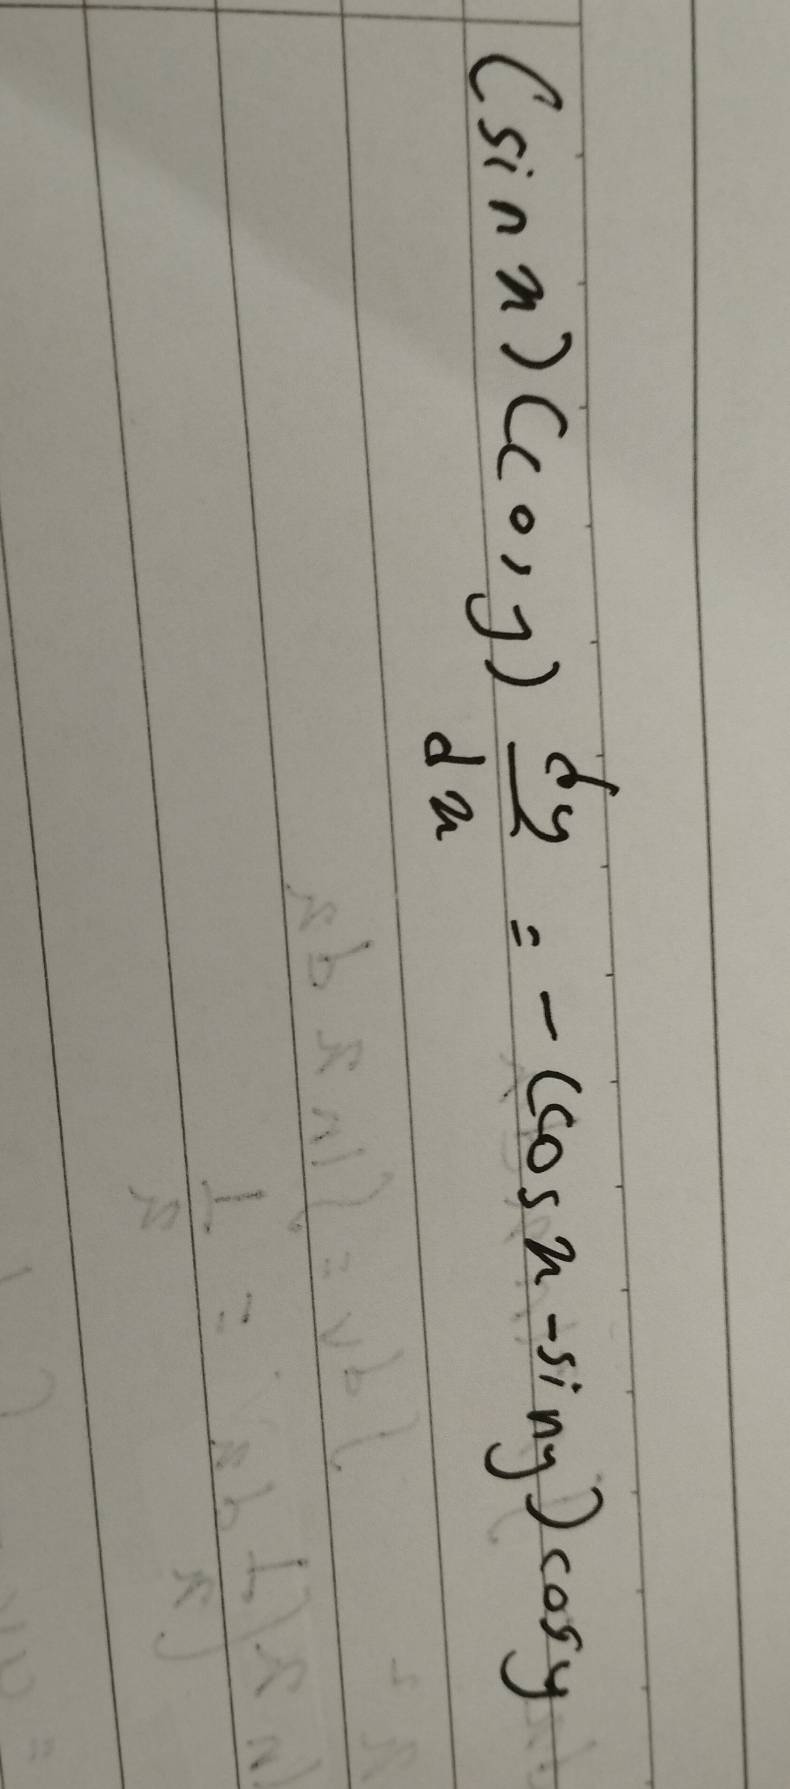 (sin x)(cos y) dy/dx = -(cos x - sin y) cos y